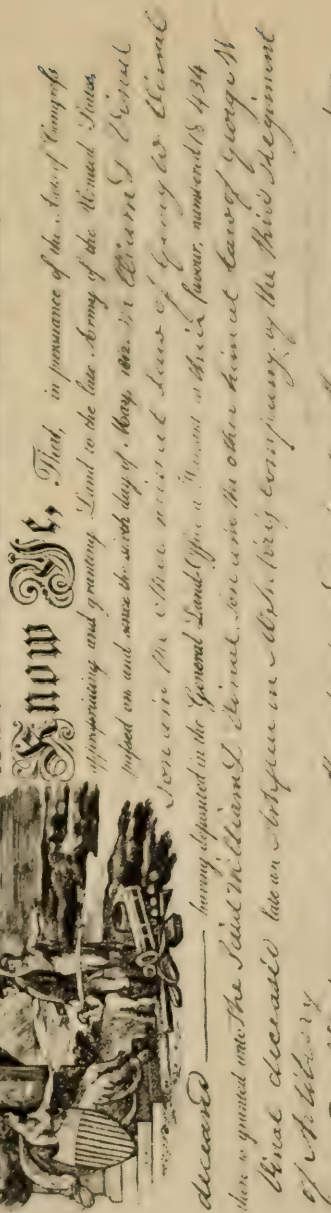 Know Ye, That, in pursuance of the Acts of Congress
appropriating and granting Land to the late Army of the United States,
passed on and since the sixth day of May, 1812. William L Vinal
Son and the other heirs at Law of George W Vinal
deceased having deposited in the General Land-Office a Warrant in their favour, numbered 18434
there is granted unto The said William L Vinal, Son and the other heirs at Law of George W
Vinal deceased late an in company of the third Regiment
of Artillery